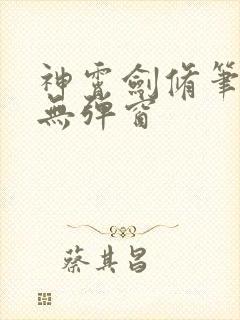 神霄劍脩筆
無彈窗
蔡其昌